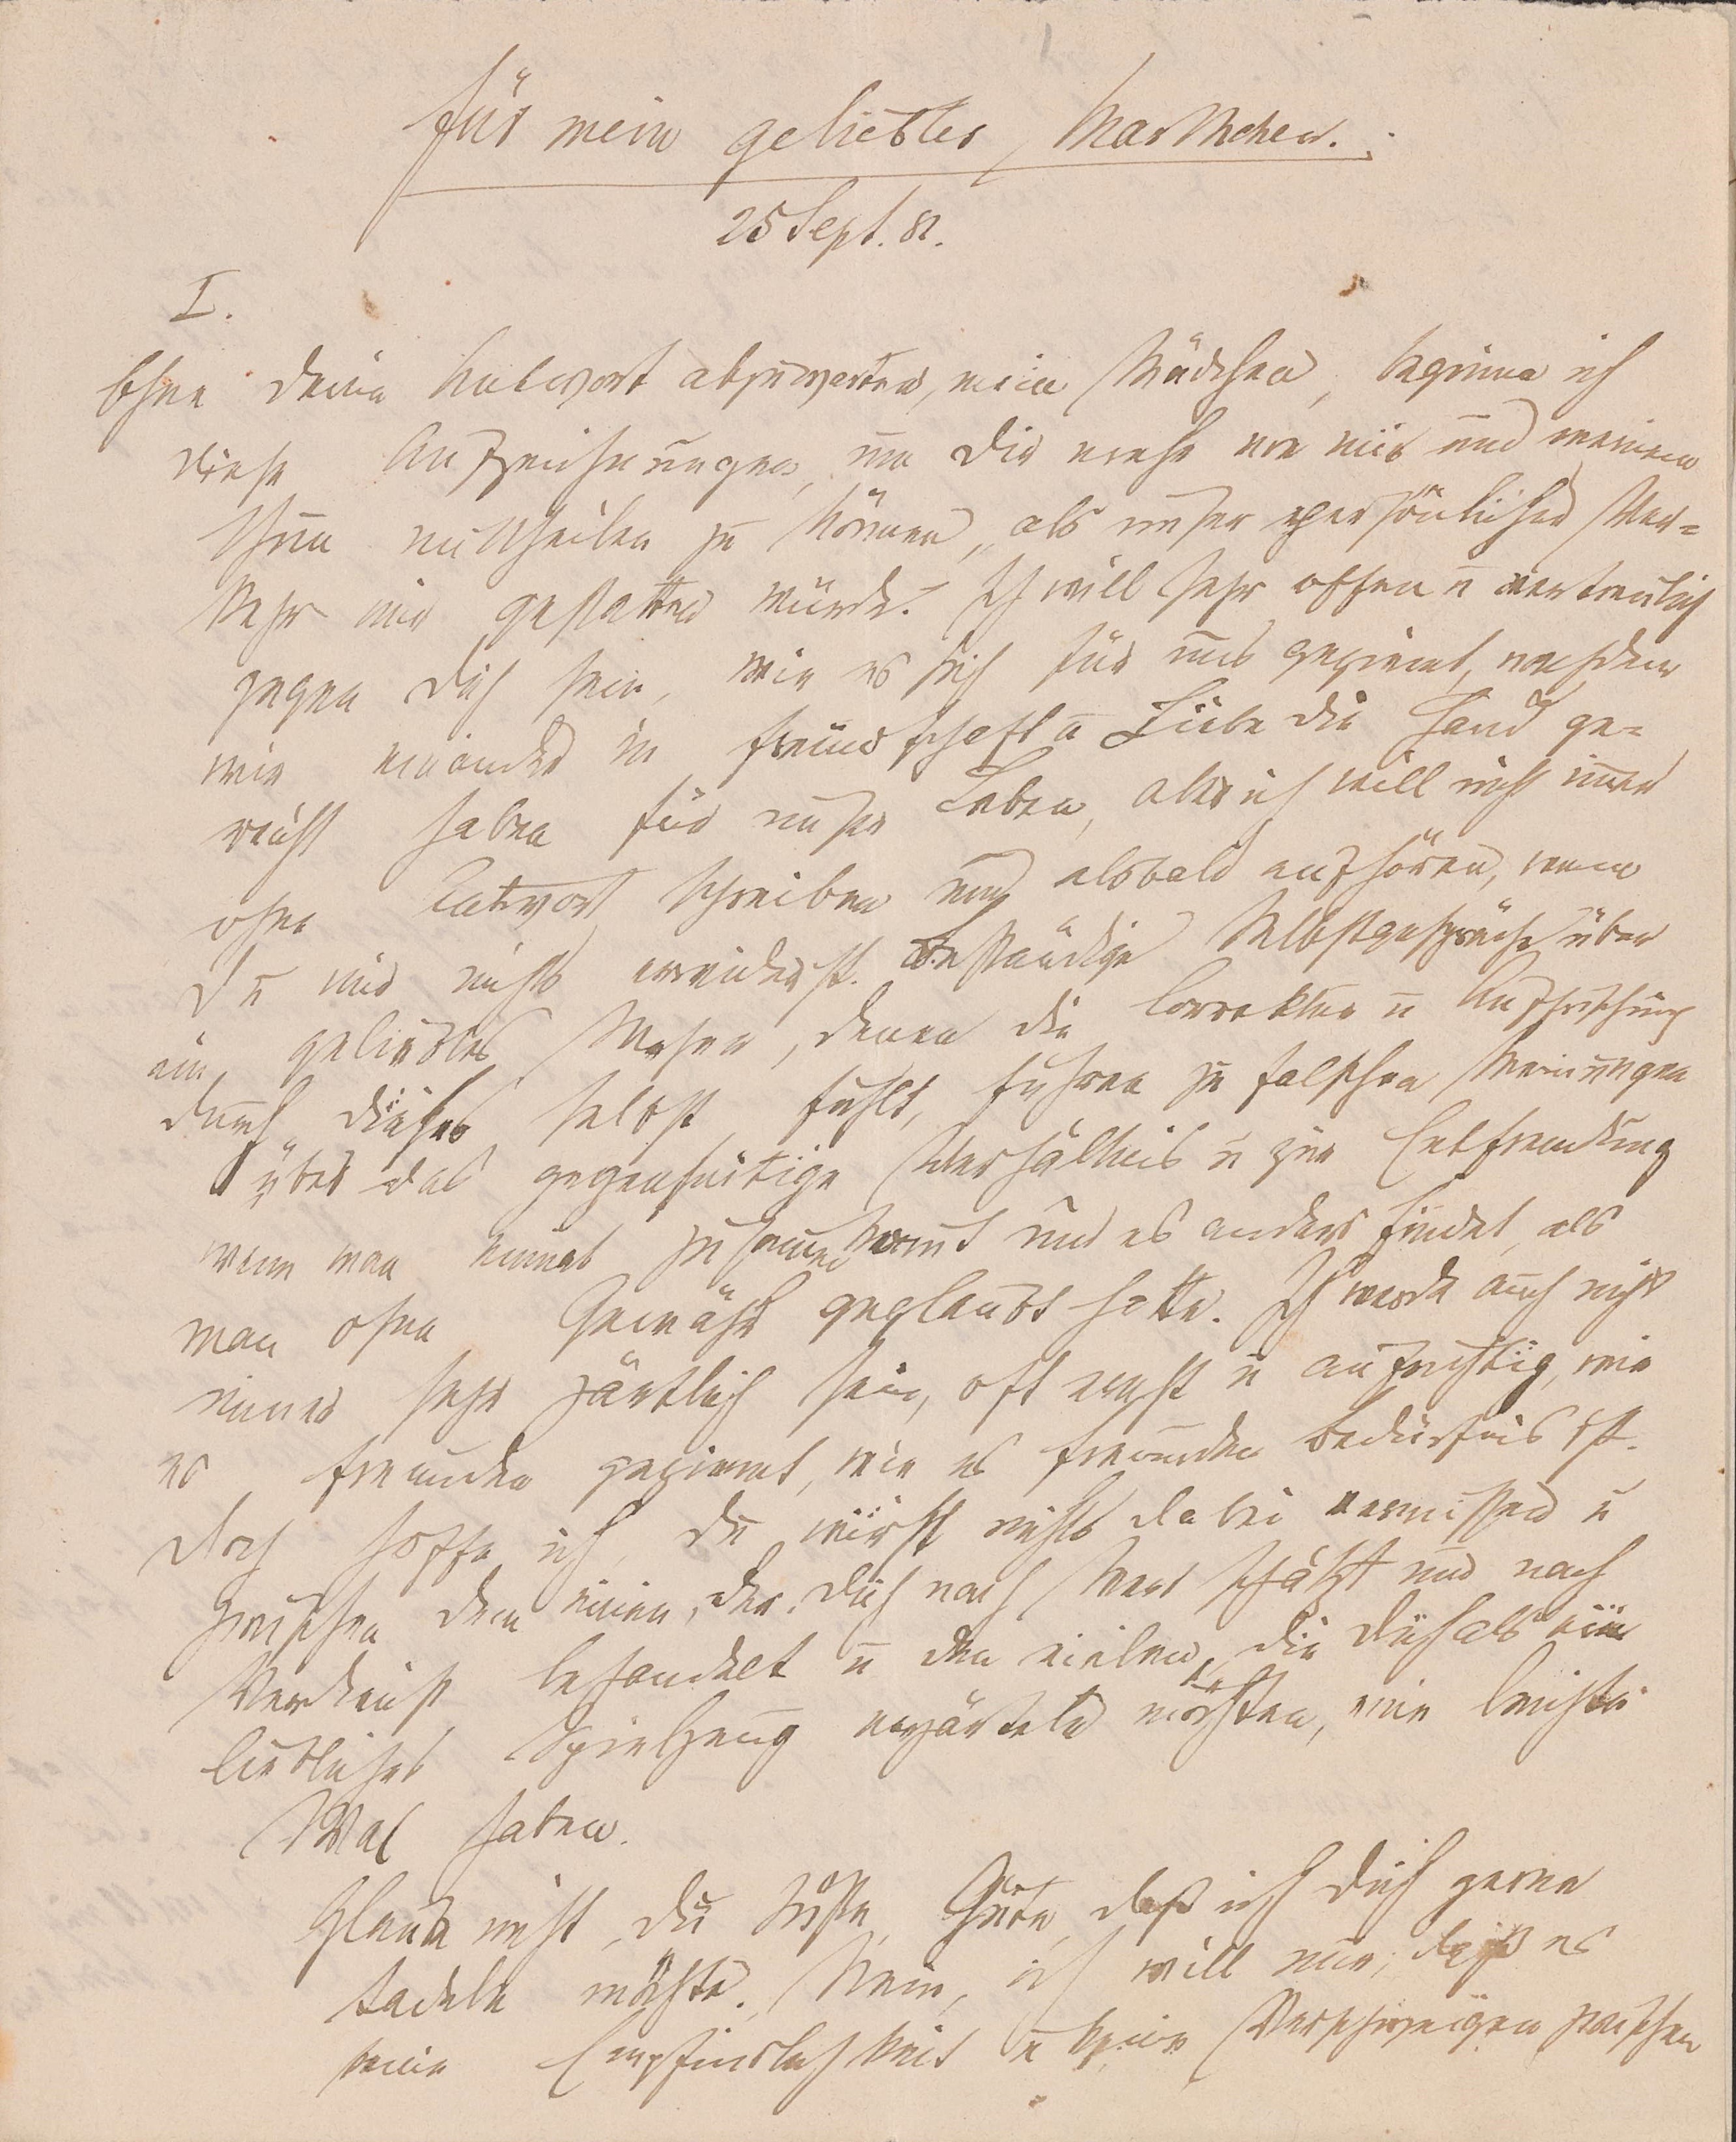 für mein geliebtes Marthchen.
25 Sept. 82.
I.
Ohne deine Antwort abzuwarten, mein Mädchen, beginne ich
diese Aufzeichnungen, um Dir mehr von mir und meinem
Thun mittheilen zu können, als unser persönlicher Ver=
kehr mir gestatten würde. Ich will sehr offen u vertraulich
gegen dich sein, wie es sich für uns geziemt, nachdem
wir einander in Freundschaft u Liebe die Hand ge=
reicht haben für unser Leben, aber ich will nicht immer
ohne Antwort schreiben und alsbald aufhören, wenn
du mir nichts erwiderst. Beständige Selbstgespräche über
ein geliebtes Wesen, denen die Correktur u Auffrischung
durch dieses selbst fehlt, führen zu falschen Meinungen
über das gegenseitige Verhältnis u zur Entfremdung
wenn man einmal zusammenkommt und es anders findet, als
man ohne Gewähr geglaubt hatte. Ich werde auch nicht
immer sehr zärtlich sein, oft ernst u aufrichtig, wie
es Freunden geziemt, wie es Freunden Bedürfnis ist.
Doch hoffe ich, du wirst nichts dabei vermissen u
zwischen dem einen, der dich nach Wert schätzt und nach
Verdienst behandelt u den vielen, die dich als ein
liebliches Spielzeug verzärteln möchten, eine leichte
Wal haben.
Glaub nicht, du süße, Gute, daß ich dich gerne
tadeln möchte. Nein, ich will nur, daß es
keine Empfindlichkeit u keine Verschweigen zwischen